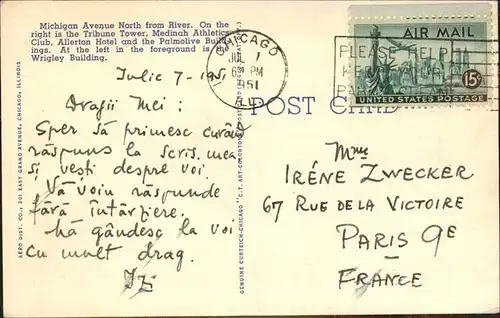 Michigan Avenue North from River. On the
right is the Tribune Tower, Medinah Athletic
Club, Allerton Hotel and the Palmolive Build-
ings. At the left in the foreground is the
Wrigley Building.
Iulie 7-1951
Dragii Mei:
Sper să primesc curând
răspuns la scris. mea
și vești despre voi.
Vă voiu răspunde
fără întârziere.
Mă gândesc la voi
cu mult drag.
AERO DIST. CO. 201 EAST GRAND AVENUE, CHICAGO, ILLINOIS
GENUINE CURTEICH-CHICAGO "C.T. ART-COLORTONE"
CHICAGO
JUL 7
PM
1951
ILL.
PLEASE HELP
AIR MAIL
15¢
UNITED STATES POSTAGE
POST CARD
Mme
IRÉNE ZWECKER
67 RUE DE LA VICTOIRE
PARIS 9E
FRANCE